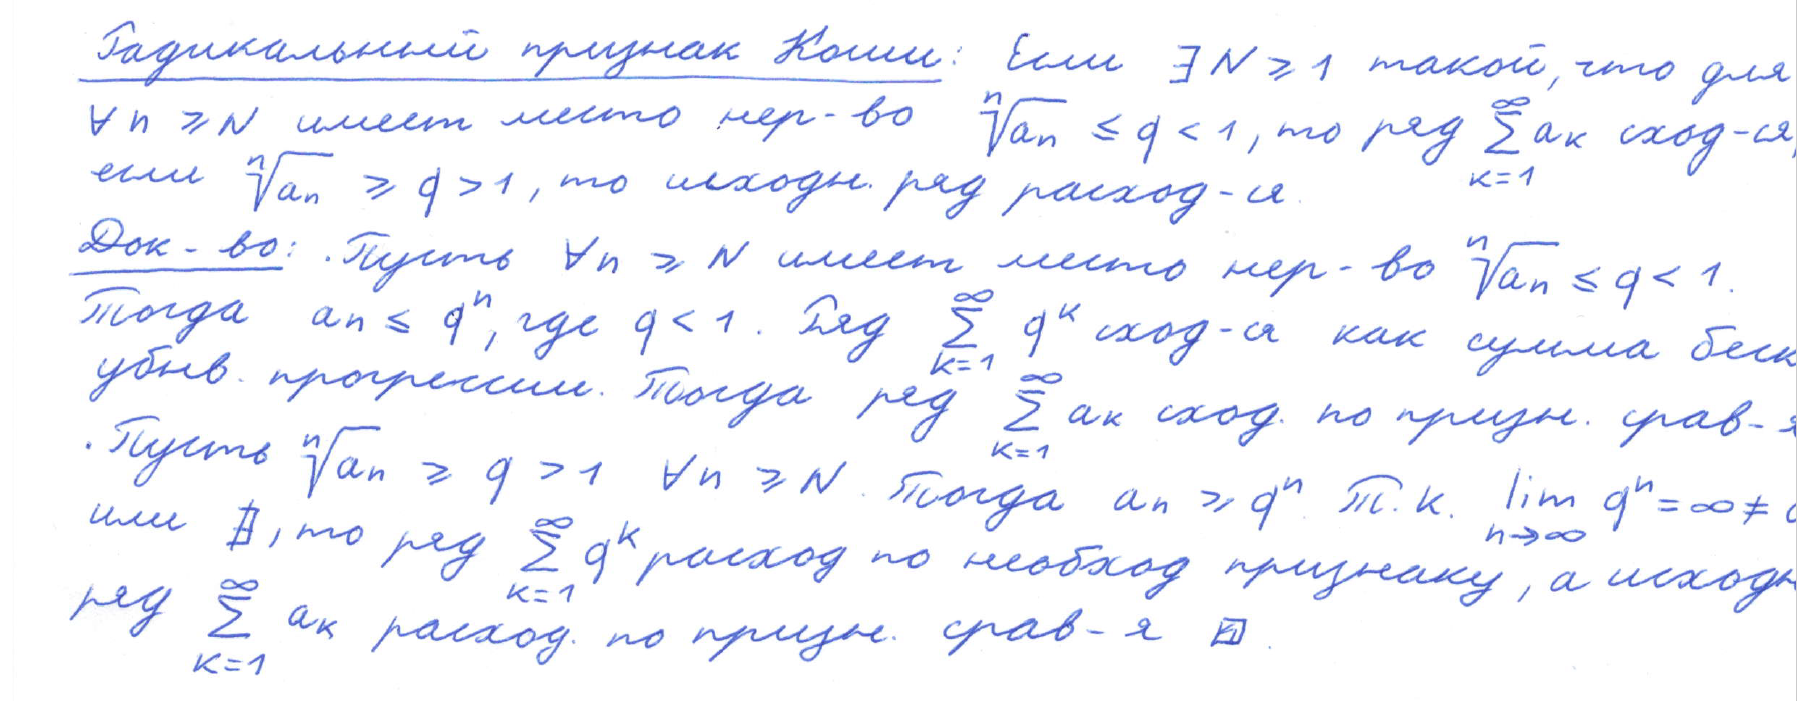 Радикальный признак Коши: Если ∃ N ≥ 1 такой, что для
∀n ≥ N имеет место нер-во ⁿ√aₙ ≤ q < 1, то ряд ∑_{k=1}^{∞} aₖ сход-ся,
если ⁿ√aₙ ≥ q > 1, то исходн. ряд расход-ся.
Док-во: · Пусть ∀n ≥ N имеет место нер-во ⁿ√aₙ ≤ q < 1.
Тогда aₙ ≤ qⁿ, где q < 1. Ряд ∑_{k=1}^{∞} qᵏ сход-ся как сумма беск
убыв. прогрессии. Тогда ряд ∑_{k=1}^{∞} aₖ сход. по призн. срав-я
· Пусть ⁿ√aₙ ≥ q > 1 ∀n ≥ N. Тогда aₙ ≥ qⁿ. Т.к. lim_{n→∞} qⁿ = ∞ ≠ 0
или ∄, то ряд ∑_{k=1}^{∞} qᵏ расход по необход признаку, а исходн
ряд ∑_{k=1}^{∞} aₖ расход. по призн. срав-я